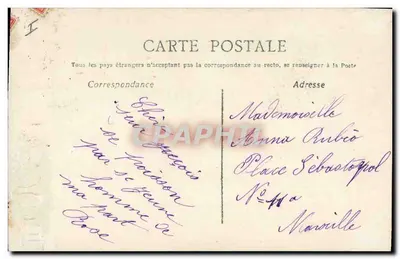 I
CARTE POSTALE
Tous les pays étrangers n'acceptant pas la correspondance au recto, se renseigner à la Poste
Correspondance
Adresse
se poisson
par se jeune
homme a
ma part
Rose
Mademoiselle
Anna Rubio
Place Sébastopol
N° 11a
Marseille